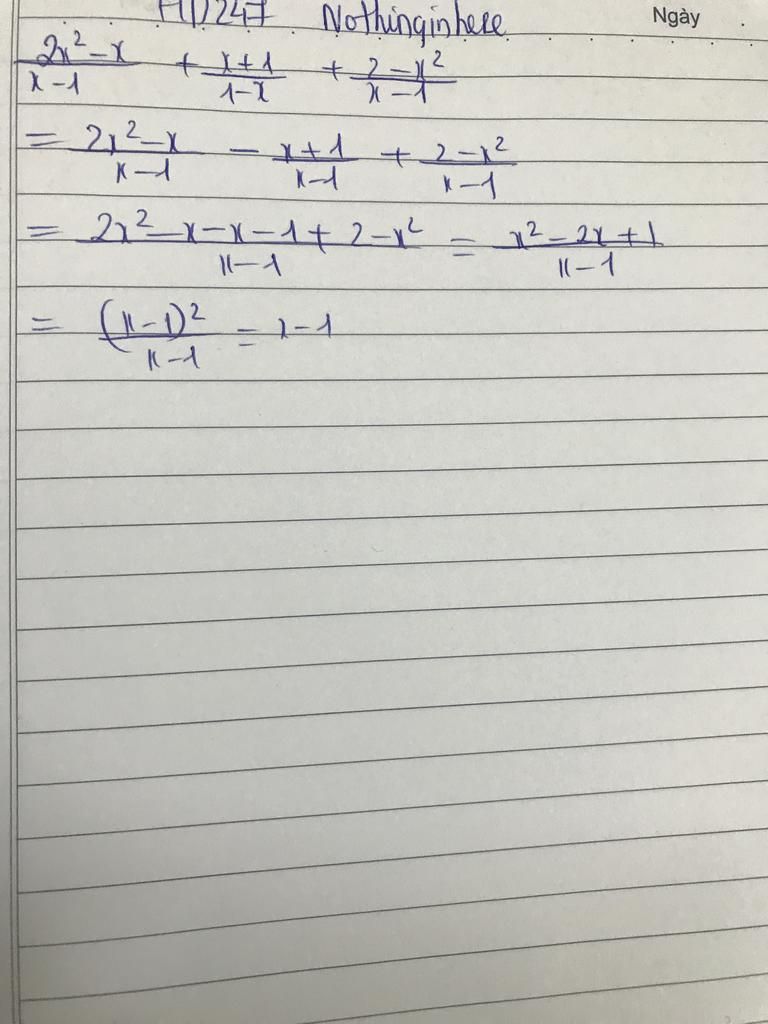 HD247 Nothinginhere Ngày
2x²-x/x-1 + x+1/1-x + 2-x²/x-1
= 2x²-x/x-1 - x+1/x-1 + 2-x²/x-1
= 2x²-x-x-1+2-x²/x-1 = x²-2x+1/x-1
= (x-1)²/x-1 = x-1